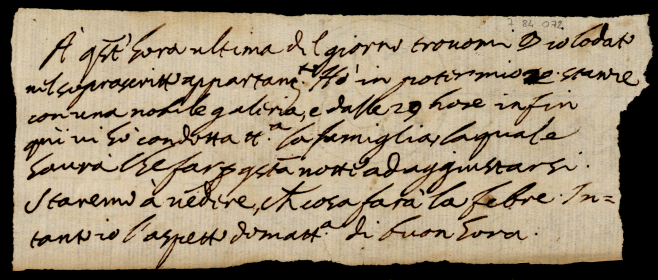 7 84 072
A qst' hora ultima del giorno trovomi Dio lodato
nel soprascritto appartam.to Hò in poter mio 2e stanze
con una nobile galeria, e dalle 29 hore infin
qui vi hò condotta tt.a la famiglia, la quale
haurà che far p qsta notte ad aggiustarsi.
Staremo à vedere, ch cosa farà la febre. In=
tanto io l'aspetto domatt.a di buon hora.